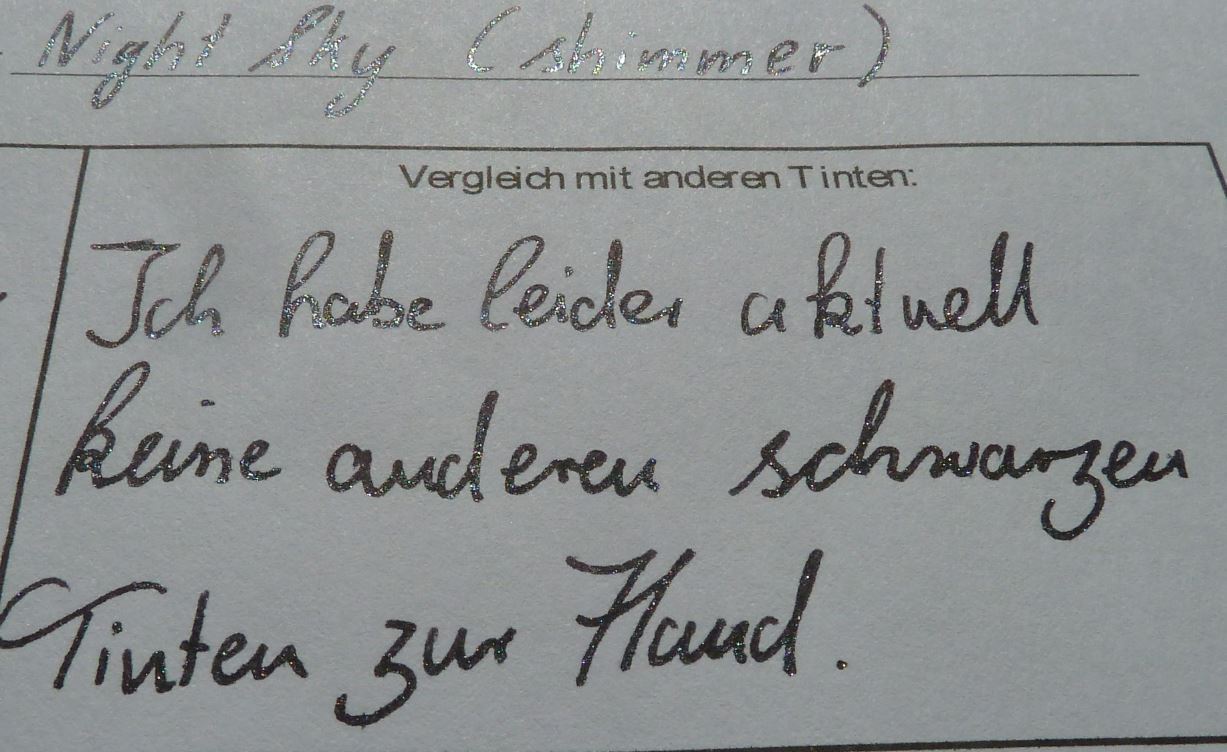 Night Sky (shimmer)
Vergleich mit anderen Tinten:
Ich habe leider aktuell
keine anderen schwarzen
Tinten zur Hand.